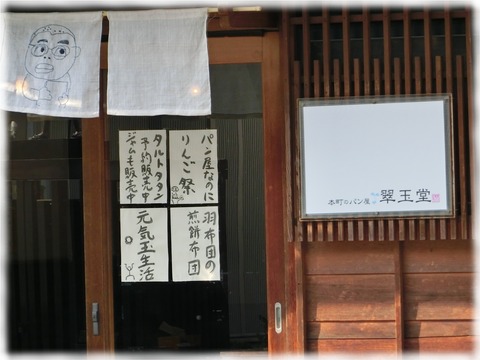 パン屋なのに
りんご祭
タルトタタン
予約販売中
ジャムも販売中
羽布団の
煎餅布団
元気玉生活
本町のパン屋
翠玉堂